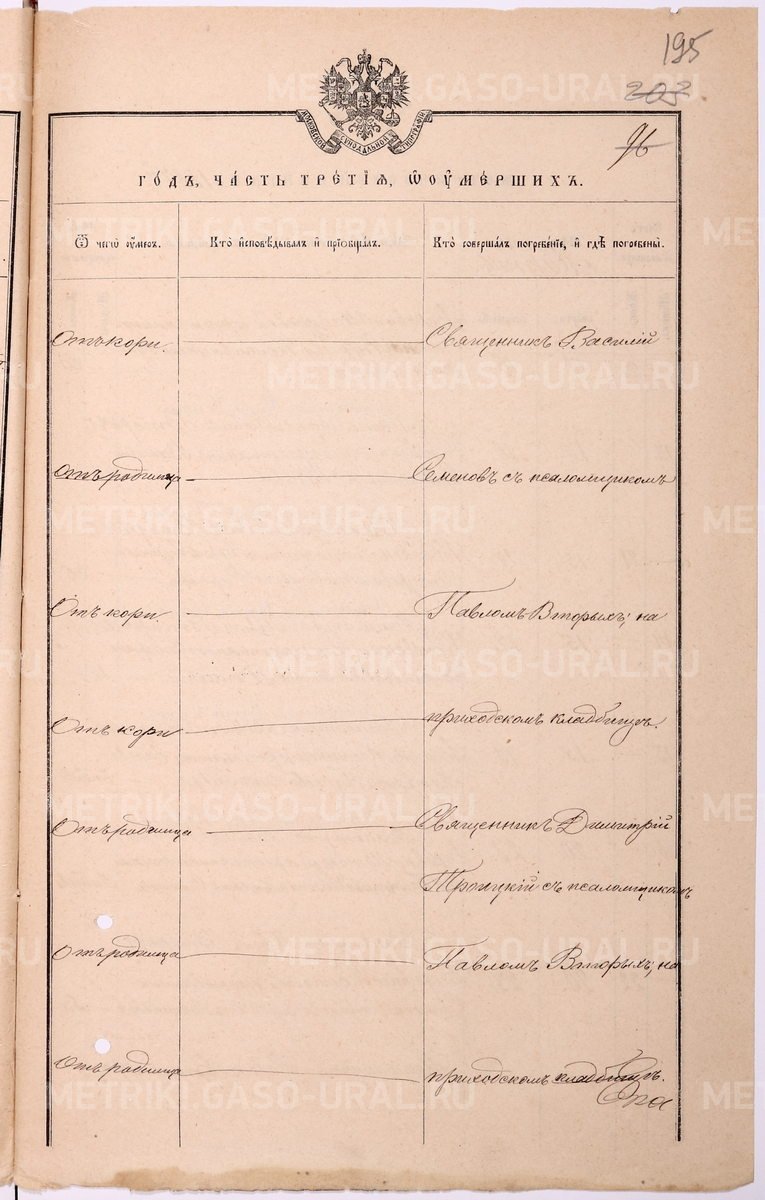 195
202
96
МОСКОВСКОЙ СѴНОДАЛЬНОЙ ТИПОГРАФІИ
ГО́ДЪ, ЧА́СТЬ ТРЕ́ТІѦ, Ѿ ОУ҆МЕ́РШИХЪ.
Ѿ чегѡ̀ оу҆́меръ.
Кто̀ и҆сповѣ́дывалъ и҆ прїѡбща́лъ.
Кто̀ соверша́лъ погребе́нїе, и҆ гдѣ̀ погребены̀.
Отъ кори.
Священникъ Василій
Отъ родимца
Семеновъ съ псаломщикомъ
Отъ кори.
Павломъ Вторыхъ; на
Отъ кори
приходскомъ кладбищѣ.
Отъ родимца
Священникъ Димитрій
Троицкій съ псаломщикомъ
Отъ родимца
Павломъ Вторыхъ; на
Отъ родимца
приходскомъ кладбищѣ.
METRIKI.GASO-URAL.RU